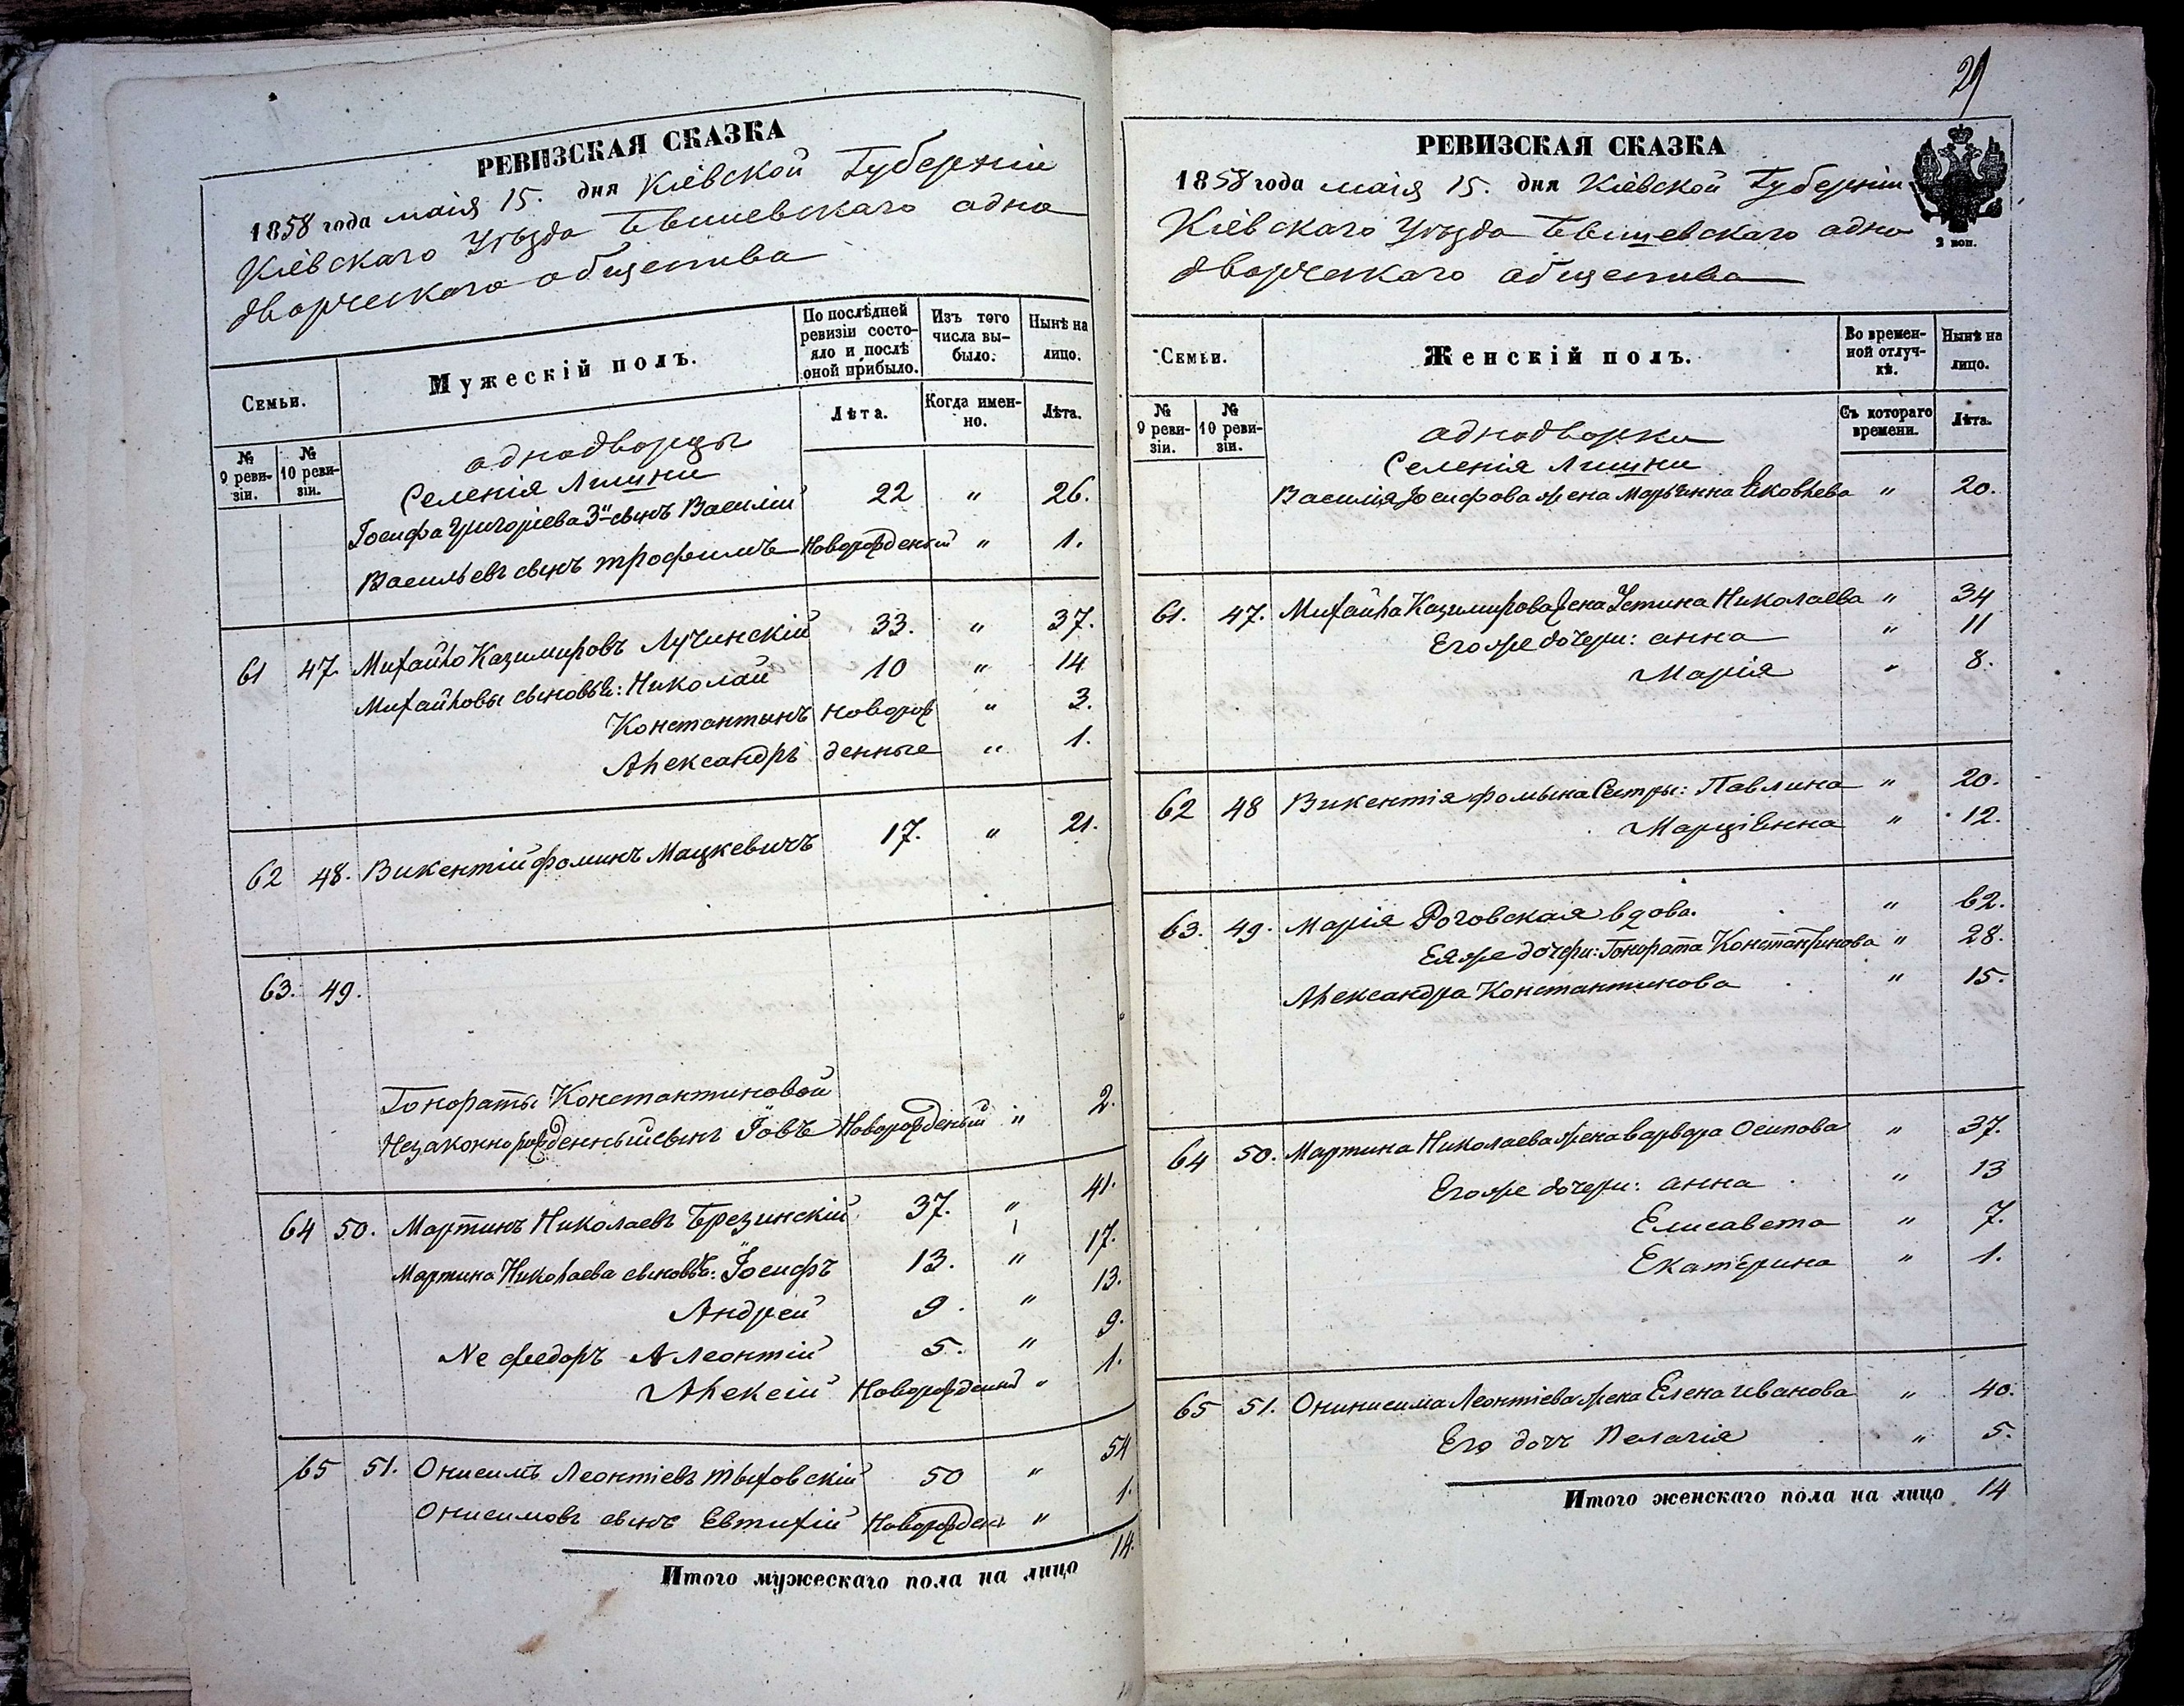 РЕВИЗСКАЯ СКАЗКА
1858 года маія 15. дня Кіевской Губерніи
Кіевскаго Уѣзда Бышевскаго одно
дворческаго общества
Семьи.
Мужескій полъ.
По послѣдней ревизіи состояло и послѣ оной прибыло.
Изъ того числа выбыло.
Нынѣ на лицо.
№ 9 ревизіи.
№ 10 ревизіи.
Лѣта.
Когда именно.
Лѣта.
однодворцы
Селенія Лишни
Іосифа Григоріева 3й сынъ Василій 22 " 26.
Васильевъ сынъ трофимъ Новорожденый " 1.
61 47. Михайло Казимировъ Лучинскій 33. " 37.
Михайловы сыновья: Николай 10 " 14
Константинъ новорож " 3.
Александръ денные " 1.
62 48. Викентій фоминъ Мацкевичъ 17. " 21.
63. 49.
Гонораты Константиновой
Незаконнорожденный сынъ Іовъ Новорожденый " 2.
64 50. Мартинъ Николаевъ Брезинскій 37. " 41.
Мартина Николаева сыновья: Іосифъ 13. " 17.
Андрей 9. " 13.
Не федоръ А Леонтій 5. " 9.
Алексій Новорожденый " 1.
65 51. Онисимъ Леонтіевъ тыховскій 50 " 54
Онисимовъ сынъ Евтихій Новорожден " 1.
Итого мужескаго пола на лицо 14.
29
РЕВИЗСКАЯ СКАЗКА
1858 года маія 15. дня Кіевской Губерніи
Кіевскаго Уѣзда Бышевскаго одно
дворческаго общества
2 коп.
Семьи.
Женскій полъ.
Во временной отлучкѣ.
Нынѣ на лицо.
№ 9 ревизіи.
№ 10 ревизіи.
Съ котораго времени.
Лѣта.
однодворки
Селенія Лишни
Василія Іосифова жена Марьянна Яковлева " 20.
61. 47. Михайла Казимирова жена Устина Николаева " 34
Его же дочери: анна " 11
Марія " 8.
62 48 Викентія фомина Сестры: Павлина " 20.
Марціянна " 12.
63. 49. Марія Роговская вдова. " 62.
Ея же дочери: Гонората Константинова " 28.
Александра Константинова " 15.
64 50. Мартина Николаева жена варвара Осипова " 37.
Его же дочери: анна " 13
Елисавета " 7.
Екатерина " 1.
65 51. Онинисима Леонтіева жена Елена иванова " 40.
Его дочь Пелагія " 5.
Итого женскаго пола на лицо 14